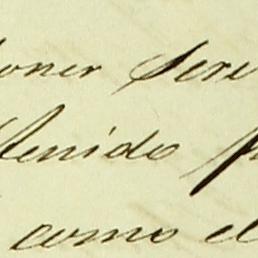 oner sere
tenido p
como el